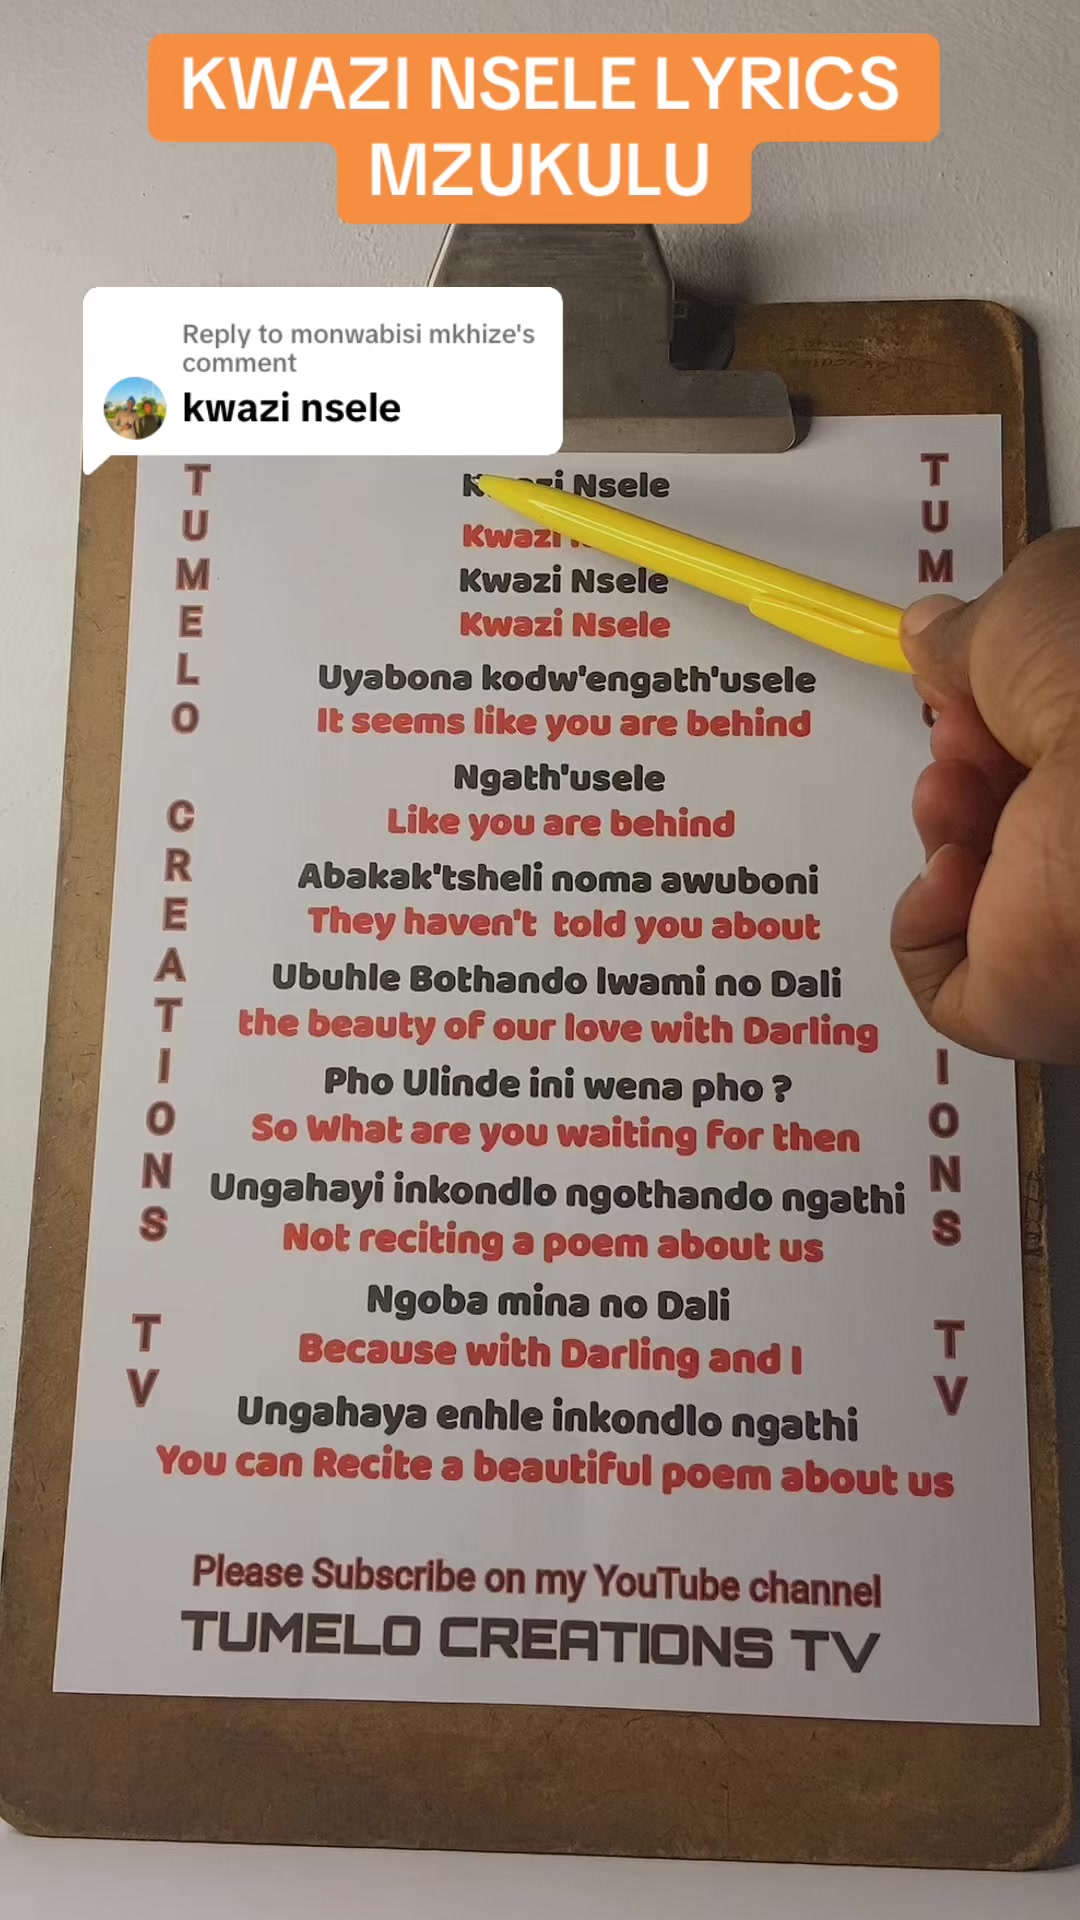 KWAZI NSELE LYRICS
MZUKULU
Reply to monwabisi mkhize's
comment
kwazi nsele
TUMELO CREATIONS TV
Nsele
Kwazi
Kwazi Nsele
Kwazi Nsele
Uyabona kodw'engath'usele
It seems like you are behind
Ngath'usele
Like you are behind
Abakak'tsheli noma awuboni
They haven't told you about
Ubuhle Bothando lwami no Dali
the beauty of our love with Darling
Pho Ulinde ini wena pho ?
So What are you waiting for then
Ungahayi inkondlo ngothando ngathi
Not reciting a poem about us
Ngoba mina no Dali
Because with Darling and I
Ungahaya enhle inkondlo ngathi
You can Recite a beautiful poem about us
TUM
IONS TV
Please Subscribe on my YouTube channel
TUMELO CREATIONS TV